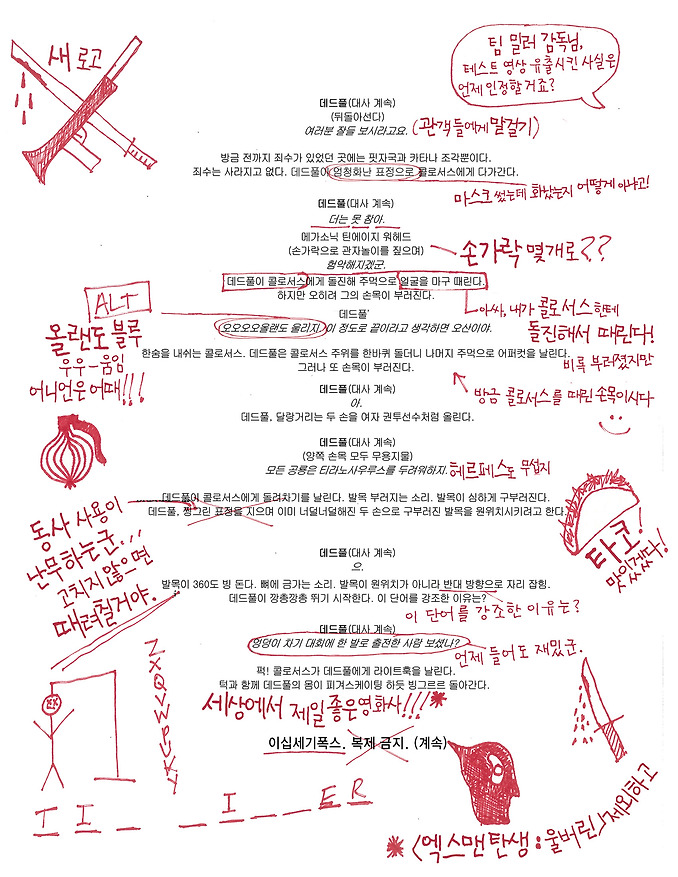 새 로고
팀 밀러 감독님,
테스트 영상 유출시킨 사실은
언제 인정할 거죠?
데드풀(대사 계속)
(뒤돌아선다)
여러분 잘들 보시라고요.
(관객들에게 말걸기)
방금 전까지 죄수가 있었던 곳에는 핏자국과 카타나 조각뿐이다.
죄수는 사라지고 없다. 데드풀이 엄청화난 표정으로 콜로서스에게 다가간다.
마스크 썼는데 화났는지 어떻게 아냐고!
데드풀(대사 계속)
더는 못 참아.
메가소닉 틴에이지 워헤드
(손가락으로 관자놀이를 짚으며)
손가락 몇개로??
험악해지겠군.
데드풀이 콜로서스에게 돌진해 주먹으로 얼굴을 마구 때린다.
하지만 오히려 그의 손목이 부러진다.
아싸, 내가 콜로서스한테
돌진해서 때린다!
비록 부러졌지만
ALT
올랜도 블루
우우-움임
어니언은 어때!!!
데드풀
오오오오올랜도 울리지. 이 정도로 끝이라고 생각하면 오산이야.
한숨을 내쉬는 콜로서스. 데드풀은 콜로서스 주위를 한바퀴 돌더니 나머지 주먹으로 어퍼컷을 날린다.
그러나 또 손목이 부러진다.
방금 콜로서스를 때린 손목이시다
데드풀(대사 계속)
아.
데드풀, 달랑거리는 두 손을 여자 권투선수처럼 올린다.
데드풀(대사 계속)
(양쪽 손목 모두 무용지물)
모든 공룡은 티라노사우루스를 두려워하지.
헤르페스도 무섭지
데드풀이 콜로서스에게 돌려차기를 날린다. 발목 부러지는 소리. 발목이 심하게 구부러진다.
데드풀, 찡그린 표정을 지으며 이미 너덜너덜해진 두 손으로 구부러진 발목을 원위치시키려고 한다.
동사 사용이
난무하는군...
고치지 않으면
때려칠거야.
타코!
맛있겠다!
데드풀(대사 계속)
으.
발목이 360도 빙 돈다. 뼈에 금가는 소리. 발목이 원위치가 아니라 반대 방향으로 자리 잡힘.
데드풀이 깡총깡총 뛰기 시작한다. 이 단어를 강조한 이유는?
이 단어를 강조한 이유는?
데드풀(대사 계속)
엉덩이 차기 대회에 한 발로 출전한 사람 보셨나?
언제 들어도 재밌군.
퍽! 콜로서스가 데드풀에게 라이트훅을 날린다.
턱과 함께 데드풀의 몸이 피겨스케이팅 하듯 빙그르르 돌아간다.
세상에서 제일 좋은영화사!!!*
이십세기폭스. 복제 금지. (계속)
T I _ _ I _ _ E R
* <엑스맨 탄생:울버린> 제외하고